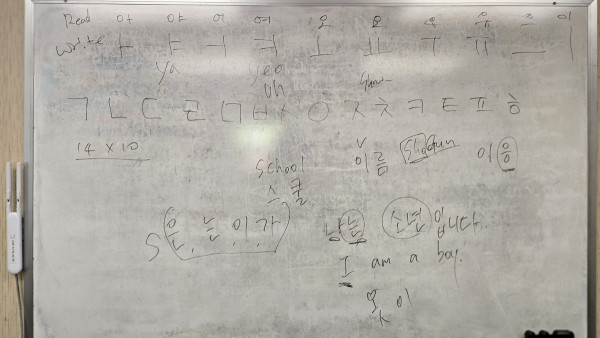 Read 아 야 어 여 오 요 우 유 으 이
Write ㅏ ㅑ ㅓ ㅕ ㅗ ㅛ ㅜ ㅠ ㅡ ㅣ
ya yeo
uh
ㄱ ㄴ ㄷ ㄹ ㅁ ㅂ ㅅ ㅇ ㅈ ㅊ ㅋ ㅌ ㅍ ㅎ
14 x 10
이름 이응
School
스쿨
S 은, 는, 이, 가
소년 입니다.
I am a boy.